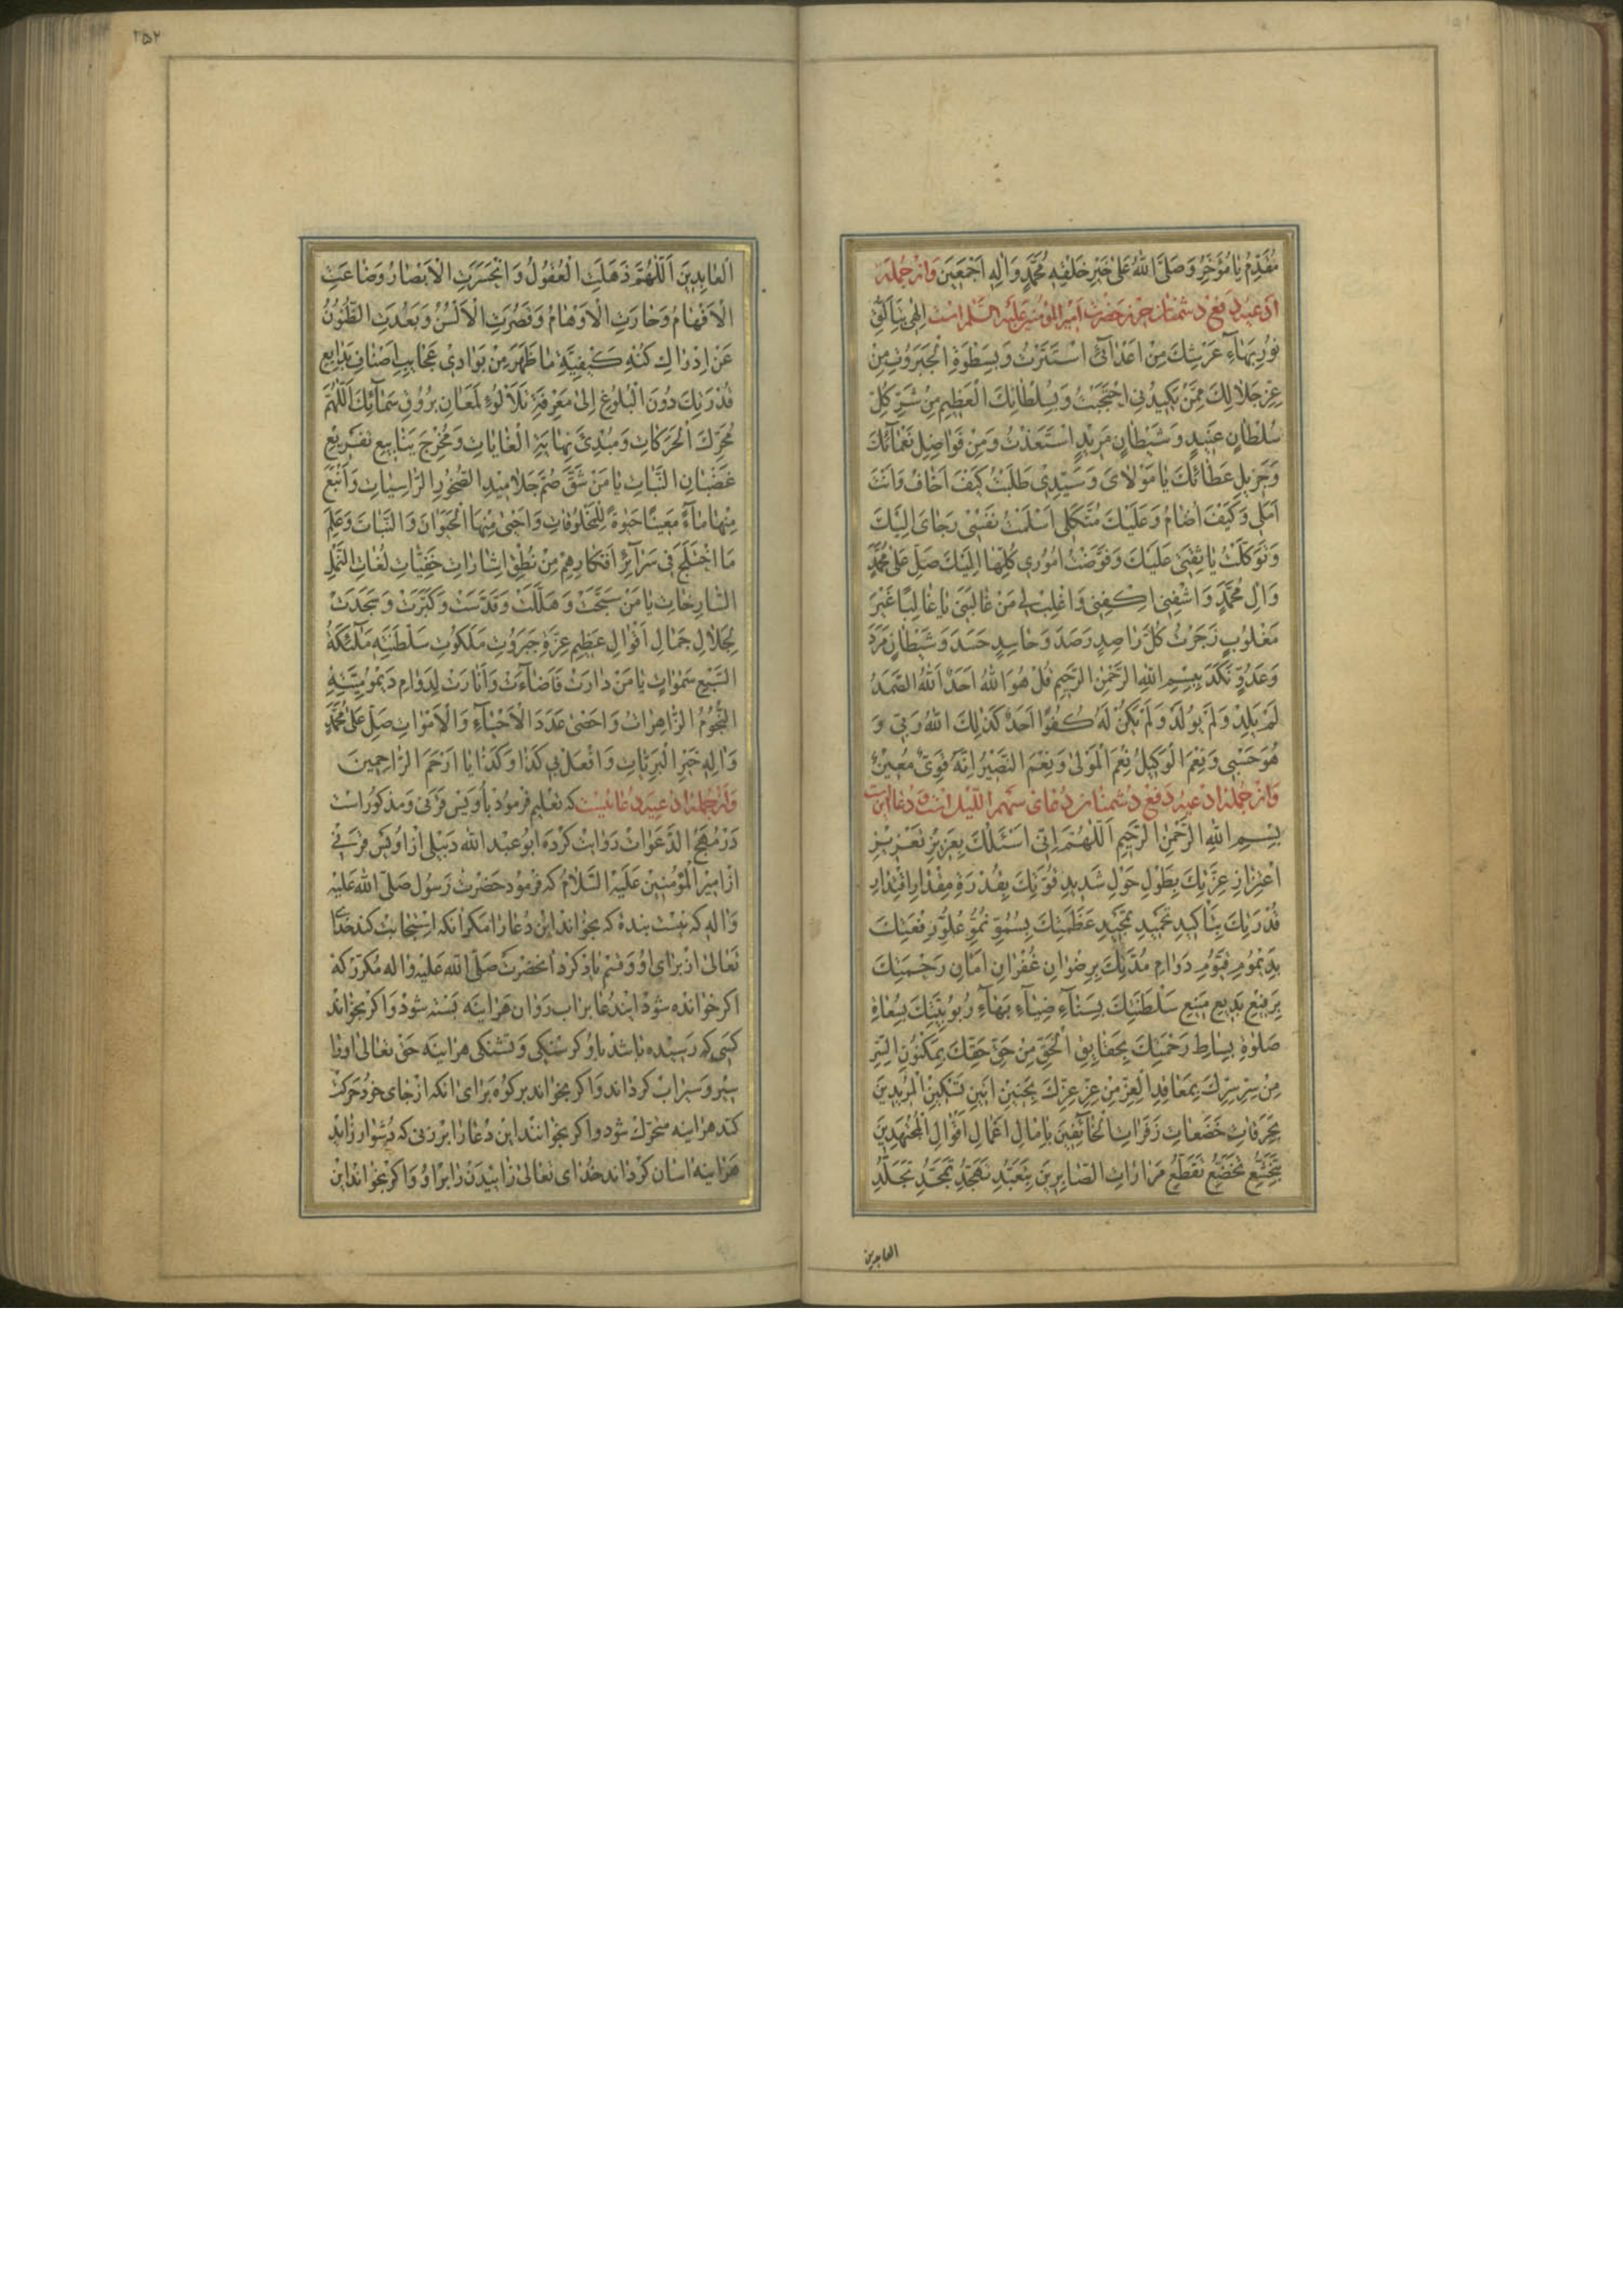 مُقَدِّمُ يَا مُؤَخِّرُ وَصَلَّى اللهُ عَلَى خَيْرِ خَلْقِهِ مُحَمَّدٍ وَآلِهِ اَجْمَعِينَ وَاز جُمله
ادعیه دفع دشمنان حرز حضرت امیرالمؤمنین علیه السلام است اِلهی بِتَأَلُّقِ
نُورِ بَهَاءِ عَرْشِكَ مِنْ اَعْدَائِى اسْتَتَرْتُ وَبِسَطْوَةِ الْجَبَرُوتِ مِنْ
عِزِّ جَلَالِكَ مِمَّنْ يَكِيدُنِى احْتَجَبْتُ وَبِسُلْطَانِكَ الْعَظِيمِ مِنْ شَرِّ كُلِّ
سُلْطَانٍ عَنِيدٍ وَشَيْطَانٍ مَرِيدٍ اسْتَعَذْتُ وَمِنْ فَوَاضِلِ نَعْمَائِكَ
وَجَزِيلِ عَطَائِكَ يَا مَوْلَاىَ وَسَيِّدِى طَلَبْتُ كَيْفَ اَخَافُ وَاَنْتَ
اَمَلِى وَكَيْفَ اُضَامُ وَعَلَيْكَ مُتَّكَلِى اَسْلَمْتُ نَفْسِى رَجَاىَ اِلَيْكَ
وَتَوَكَّلْتُ يَا ثِقَتِى عَلَيْكَ وَفَوَّضْتُ اُمُورِى كُلَّهَا اِلَيْكَ صَلِّ عَلَى مُحَمَّدٍ
وَآلِ مُحَمَّدٍ وَاشْفِنِى اكْفِنِى وَاغْلِبْ لِى مَنْ غَالَبَنِى يَا غَالِبًا غَيْرَ
مَغْلُوبٍ زَجَرْتُ كُلَّ رَاصِدٍ رَصَدَ وَحَاسِدٍ حَسَدَ وَشَيْطَانٍ مَرَدَ
وَعَدُوٍّ نَكَدَ بِبِسْمِ اللهِ الرَّحْمٰنِ الرَّحِيمِ قُلْ هُوَ اللهُ اَحَدٌ اَللهُ الصَّمَدُ
لَمْ يَلِدْ وَلَمْ يُولَدْ وَلَمْ يَكُنْ لَهُ كُفُوًا اَحَدٌ كَذٰلِكَ اللهُ رَبِّى وَ
هُوَ حَسْبِى وَنِعْمَ الْوَكِيلُ نِعْمَ الْمَوْلَى وَنِعْمَ النَّصِيرُ اِنَّهُ قَوِىٌّ مُعِينٌ
وَاز جُمله ادعیه دفع دشمنان دعای سهم اللیل است و دعا این است
بِسْمِ اللهِ الرَّحْمٰنِ الرَّحِيمِ اَللّٰهُمَّ اِنِّى اَسْئَلُكَ بِعَزِيزِ تَعْزِيزِ
اعْتِزَازِ عِزَّتِكَ بِطَوْلِ حَوْلِ شَدِيدِ قُوَّتِكَ بِقُدْرَةِ مِقْدَارِ اقْتِدَارِ
قُدْرَتِكَ بِتَأْكِيدِ تَحْمِيدِ تَمْجِيدِ عَظَمَتِكَ بِسُمُوِّ نُمُوِّ عُلُوِّ رِفْعَتِكَ
بِدَيْمُومِ قَيُّومِ دَوَامِ مُدَّتِكَ بِرِضْوَانِ غُفْرَانِ اَمَانِ رَحْمَتِكَ
بِرَفِيعِ بَدِيعِ مَنِيعِ سَلْطَنَتِكَ بِسَنَاءِ ضِيَاءِ بَهَاءِ رُبُوبِيَّتِكَ بِسُعَاةِ
صَلٰوةِ بِسَاطِ رَحْمَتِكَ بِحَقَايِقِ الْحَقِّ مِنْ حَقِّ حَقِّكَ بِمَكْنُونِ السِّرِّ
مِنْ سِرِّ سِرِّكَ بِمَعَاقِدِ الْعِزِّ مِنْ عِزِّ عِزِّكَ بِحَنِينِ اَنِينِ تَسْكِينِ الْمُرِيدِينَ
بِحَرَقَاتِ خَضَعَاتِ زَفَرَاتِ الْخَائِفِينَ بِآمَالِ اَعْمَالِ اَقْوَالِ الْمُجْتَهِدِينَ
بِتَخَشُّعِ تَخَضُّعِ تَقَطُّعِ مَرَارَاتِ الصَّابِرِينَ بِتَعَبُّدِ تَهَجُّدِ تَمَجُّدِ تَجَلُّدِ
العابدین
٢٥٢
الْعَابِدِينَ اَللّٰهُمَّ ذَهَلَتِ الْعُقُولُ وَانْحَسَرَتِ الْاَبْصَارُ وَضَاعَتِ
الْاَفْهَامُ وَحَارَتِ الْاَوْهَامُ وَقَصُرَتِ الْاَلْسُنُ وَبَعُدَتِ الظُّنُونُ
عَنْ اِدْرَاكِ كُنْهِ كَيْفِيَّةِ مَا ظَهَرَ مِنْ بَوَادِى عَجَايِبِ اَصْنَافِ بَدَايِعِ
قُدْرَتِكَ دُونَ الْبُلُوغِ اِلَى مَعْرِفَةِ تَلَأْلُؤِ لَمَعَانِ بُرُوقِ سَمَائِكَ اَللّٰهُمَّ
مُحَرِّكَ الْحَرَكَاتِ وَمُبْدِئَ نِهَايَةِ الْغَايَاتِ وَمُخْرِجَ يَنَابِيعِ تَفْرِيعِ
غَضْبَانِ النَّبَاتِ يَا مَنْ شَقَّ صُمَّ جَلَامِيدِ الصُّخُورِ الرَّاسِيَاتِ وَاَنْبَعَ
مِنْهَا مَاءً مَعِينًا حَيٰوةً لِلْمَخْلُوقَاتِ وَاَحْيَى مِنْهَا الْحَيَوَانَ وَالنَّبَاتَ وَعَلِمَ
مَا اخْتَلَجَ فِى سَرَائِرِ اَفْكَارِهِمْ مِنْ نُطْقِ اِشَارَاتِ خَفِيَّاتِ لُغَاتِ النَّمْلِ
السَّارِحَاتِ يَا مَنْ سَبَّحَتْ وَهَلَّلَتْ وَقَدَّسَتْ وَكَبَّرَتْ وَسَجَدَتْ
لِجَلَالِ جَمَالِ اَقْوَالِ عَظِيمِ عِزَّةِ جَبَرُوتِ مَلَكُوتِ سَلْطَنَتِهِ مَلٰئِكَةُ
السَّبْعِ سَمٰوَاتٍ يَا مَنْ دَارَتْ فَاَضَاءَتْ وَاَنَارَتْ لِدَوَامِ دَيْمُومِيَّتِهِ
النُّجُومُ الزَّاهِرَاتُ وَاَحْصَى عَدَدَ الْاَحْيَاءِ وَالْاَمْوَاتِ صَلِّ عَلَى مُحَمَّدٍ
وَآلِهِ خَيْرِ الْبَرِيَّاتِ وَافْعَلْ بِى كَذَا وَكَذَا يَا اَرْحَمَ الرَّاحِمِينَ
وَاز جُمله ادعیه دعائیست که تعلیم فرمود باویس قرنی و مذکور است
در مهج الدعوات روایت کرده ابو عبد الله دبیلی از اویس قرنی
از امیر المؤمنین علیه السلام که فرمود حضرت رسول صلی الله علیه
و اله که نیست بنده که بخواند این دعا را مکر انکه استجابت کند خدای
تعالی از برای او و قسم یاد کرد انحضرت صلی الله علیه و اله مکرر که
اکر خوانده شود ایندعا بر اب روان هراینه بسته شود و اکر بخواند
کسی که رسیده باشد باو کرسنکی و تشنکی هراینه حق تعالی او را
سیر و سیراب کرداند و اکر بخواند بر کوه برای انکه از جای خود حرکت
کند هراینه متحرک شود و اکر بخوانند این دعا را بر زنی که دشوار زاید
هراینه اسان کرداند خدای تعالی زائیدن را بر او و اکر بخواند این